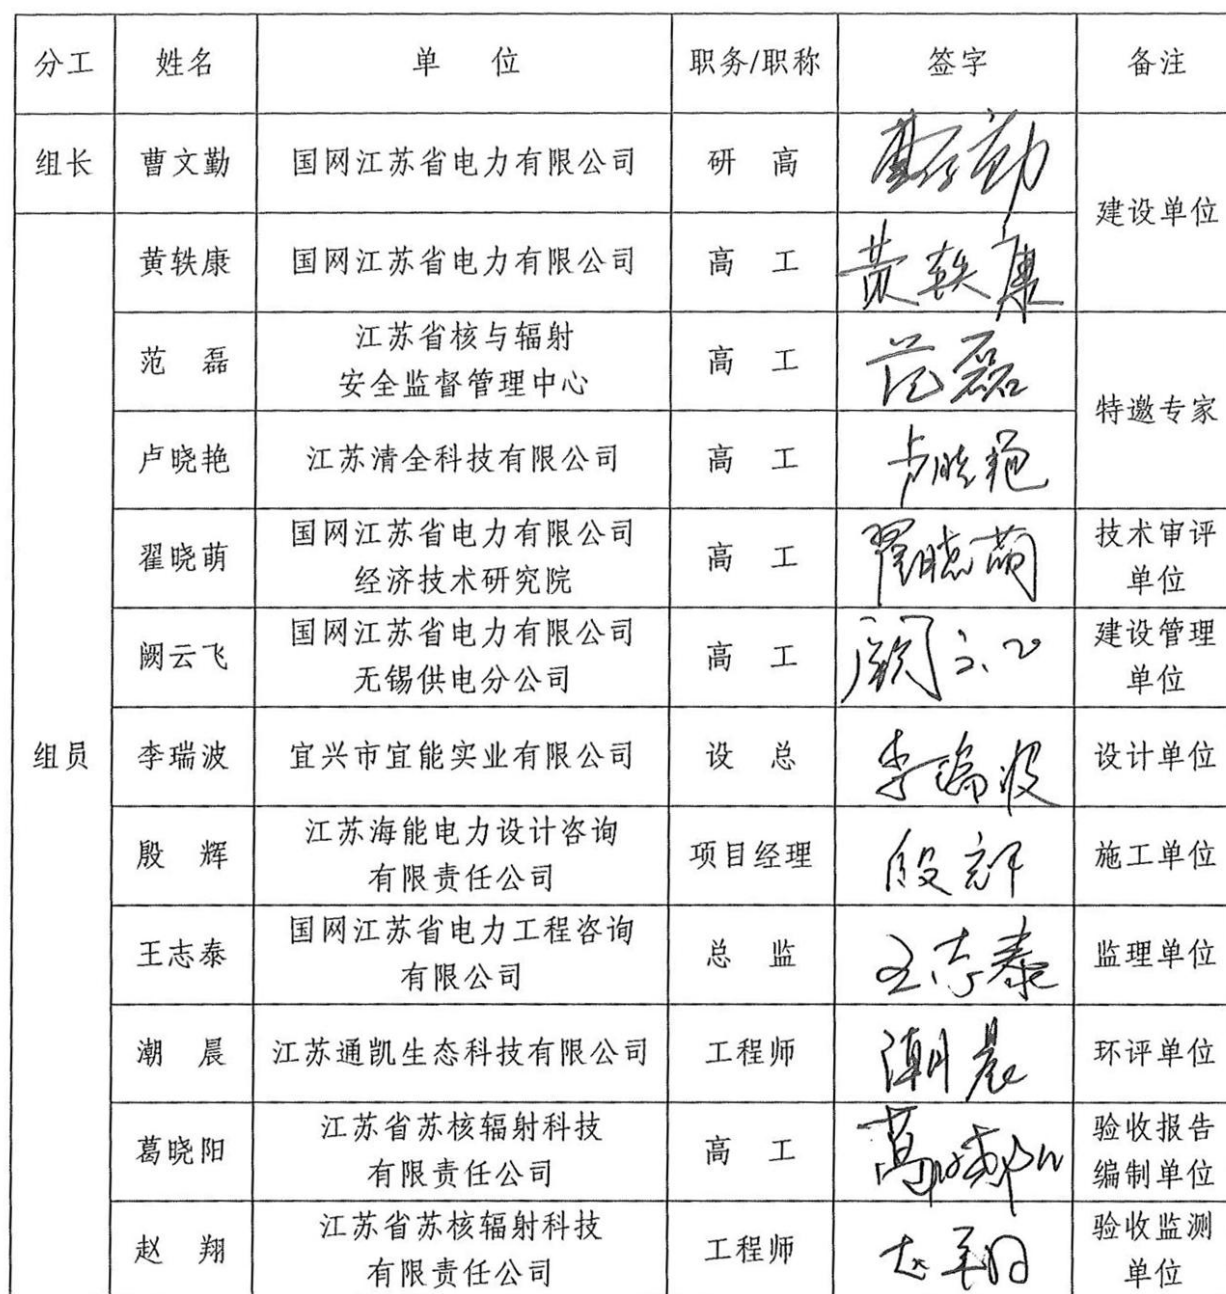 分工 姓名 单 位 职务/职称 签字 备注
组长 曹文勤 国网江苏省电力有限公司 研 高 曹文勤
建设单位
黄轶康 国网江苏省电力有限公司 高 工 黄轶康
范 磊 江苏省核与辐射
安全监督管理中心 高 工 范磊
特邀专家
卢晓艳 江苏清全科技有限公司 高 工 卢晓艳
翟晓萌 国网江苏省电力有限公司
经济技术研究院 高 工 翟晓萌 技术审评
单位
阙云飞 国网江苏省电力有限公司
无锡供电分公司 高 工 阙云飞 建设管理
单位
组员 李瑞波 宜兴市宜能实业有限公司 设 总 李瑞波 设计单位
殷 辉 江苏海能电力设计咨询
有限责任公司 项目经理 殷辉 施工单位
王志泰 国网江苏省电力工程咨询
有限公司 总 监 王志泰 监理单位
潮 晨 江苏通凯生态科技有限公司 工程师 潮晨 环评单位
葛晓阳 江苏省苏核辐射科技
有限责任公司 高 工 葛晓阳 验收报告
编制单位
赵 翔 江苏省苏核辐射科技
有限责任公司 工程师 赵翔 验收监测
单位